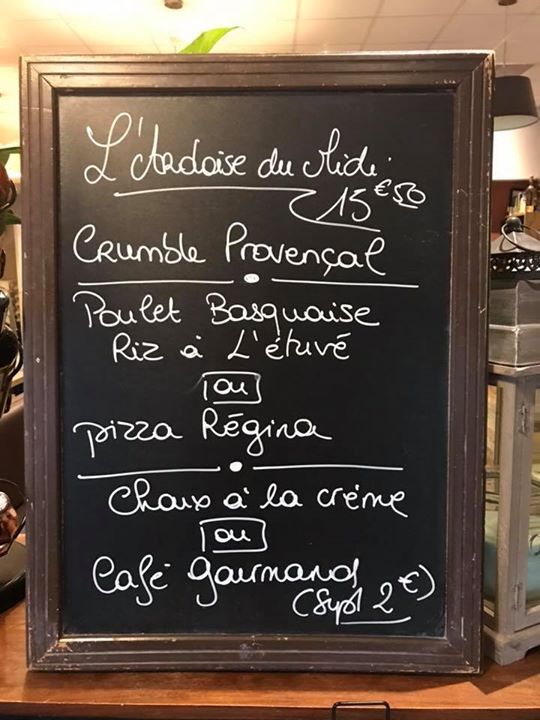 L'Ardoise du Midi
15€50
Crumble Provençal
Poulet Basquaise
Riz à L'étuvé
ou
pizza Régina
Choux à la crème
ou
Café gourmand
(Suppl 2€)